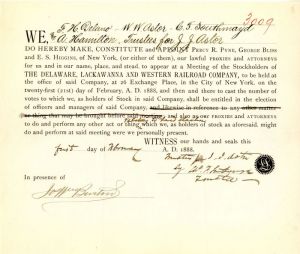 3009
WE, F. H. Delano W W Astor C F Southmayd
Hamilton, Trustees for J J Astor
DO HEREBY MAKE, CONSTITUTE and APPOINT PERCY R. PYNE, GEORGE BLISS
and E. S. HIGGINS, of New York, (or either of them), our lawful PROXIES and ATTORNEYS
for us and in our name, place, and stead, to appear at a Meeting of the Stockholders of
THE DELAWARE, LACKAWANNA AND WESTERN RAILROAD COMPANY, to be held at the
office of said Company, at 26 Exchange Place, in the City of New York, on the
twenty-first (21st) day of February, A. D. 1888, and then and there to cast the number of
votes to which we, as holders of Stock in said Company, shall be entitled in the election
of officers and managers of said Company and likewise in reference to any other matter
or thing that may be brought before said meeting and our PROXIES and ATTORNEYS
to do and perform any other act or thing which we, as holders of stock as aforesaid, might
do and perform at said meeting were we personally present.
WITNESS our hands and seals this
first day of February A. D. 1888.
J. J. Astor
by
Trustee
In presence of